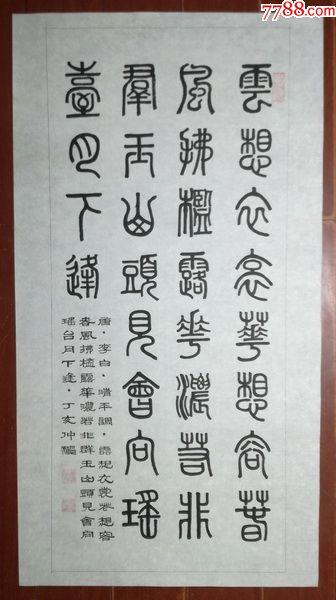 7788.com
雲想衣裳華想容春
風拂檻露華濃若非
羣玉山頭見會向瑤
臺月下逢
唐·李白·清平調·雲想衣裳花想容
春風拂檻露華濃若非群玉山頭見會向
瑶台月下逢·丁亥仲